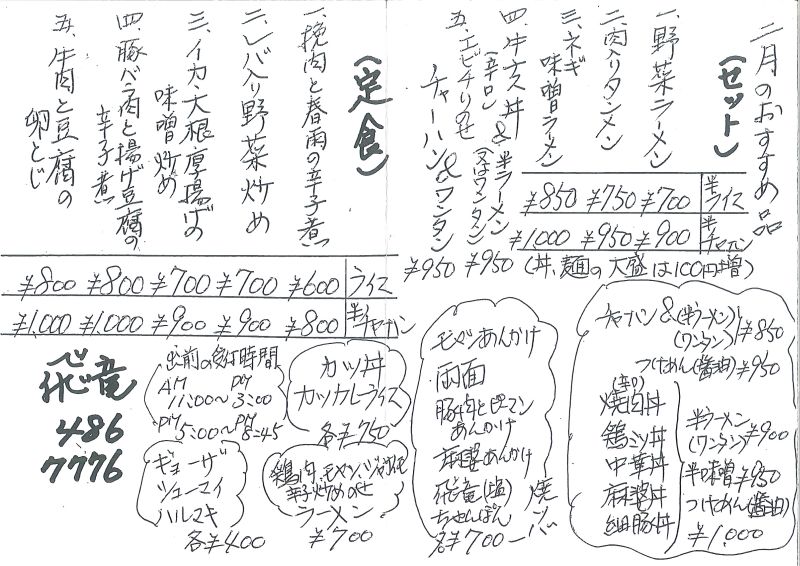 二月のおすすめ品
(セット)
一、野菜ラーメン
二、肉入りタンメン
三、ネギ
味噌ラーメン
四、牛天丼&半ラーメン
(辛口)
(又はワンタン)
五、エビチリのせ
チャーハン&ワンタン
半ライス
¥700
¥750
¥850
半チャーハン
¥900
¥950
¥1,000
¥950
¥950
(丼、麺の大盛は100円増)
(定食)
一、挽肉と春雨の辛子煮
二、レバ入り野菜炒め
三、イカ、大根、厚揚げの
味噌炒め
四、豚バラ肉と揚げ豆腐の
辛子煮
五、牛肉と豆腐の
卵とじ
ライス
¥600
¥700
¥700
¥800
¥800
半チャーハン
¥800
¥900
¥900
¥1,000
¥1,000
チャーハン&(半ラーメン)
(ワンタン)
¥850
つけめん(醤油)¥950
(辛口)
焼肉丼
鶏ミソ丼
中華丼
麻婆丼
細豚丼
半ラーメン
(ワンタン)¥900
半味噌¥950
つけめん(醤油)
¥1,000
モメンあんかけ
両面
豚肉とピーマン
あんかけ
麻婆あんかけ
飛竜(塩)
ちゃんぽん
焼ソバ
各¥700
カツ丼
カツカレーライス
各¥750
鶏肉、モメン、ジャガイモ
辛子炒めのせ
ラーメン
¥700
出前の受付時間
AM 11:00~PM 3:00
PM 5:00~PM 8:45
ギョーザ
シューマイ
ハルマキ
各¥400
飛竜
486
7776